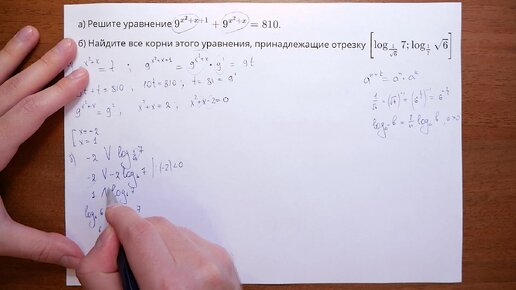 а) Решите уравнение 9^(x²+x+1) + 9^(x²+x) = 810.
б) Найдите все корни этого уравнения, принадлежащие отрезку [log_(1/√6) 7; log_(1/7) √6]
9^(x²+x) = t ; 9^(x²+x+1) = 9^(x²+x)·9¹ = 9t
9t + t = 810, 10t = 810 ; t = 81 = 9²
9^(x²+x) = 9², x²+x = 2, x²+x-2=0
[ x = -2
x = 1
-2 ∨ log_(1/√6) 7
-2 ∨ -2 log_6 7 | :(-2)<0
1 ∧ log_6 7
log_6 6 7
6
a^(n+k) = aⁿ·a^k